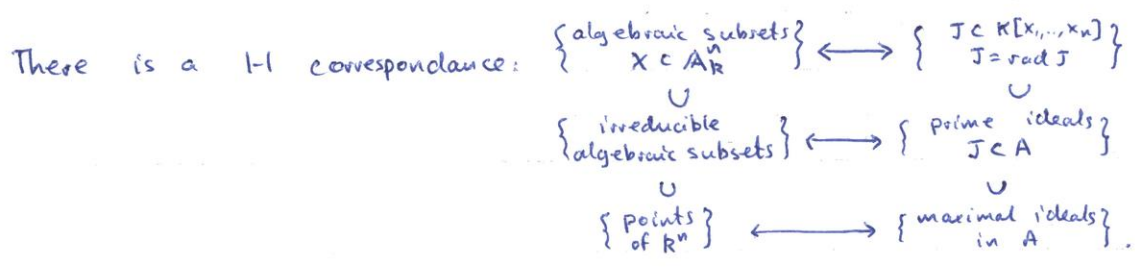 There is a 1-1 correspondance: { algebraic subsets X ⊂ 𝔸ⁿₖ } ⟷ { J ⊂ K[x₁,..,xₙ] J = rad J }
∪ ∪
{ irreducible algebraic subsets } ⟷ { prime ideals J ⊂ A }
∪ ∪
{ points of kⁿ } ⟷ { maximal ideals in A }.